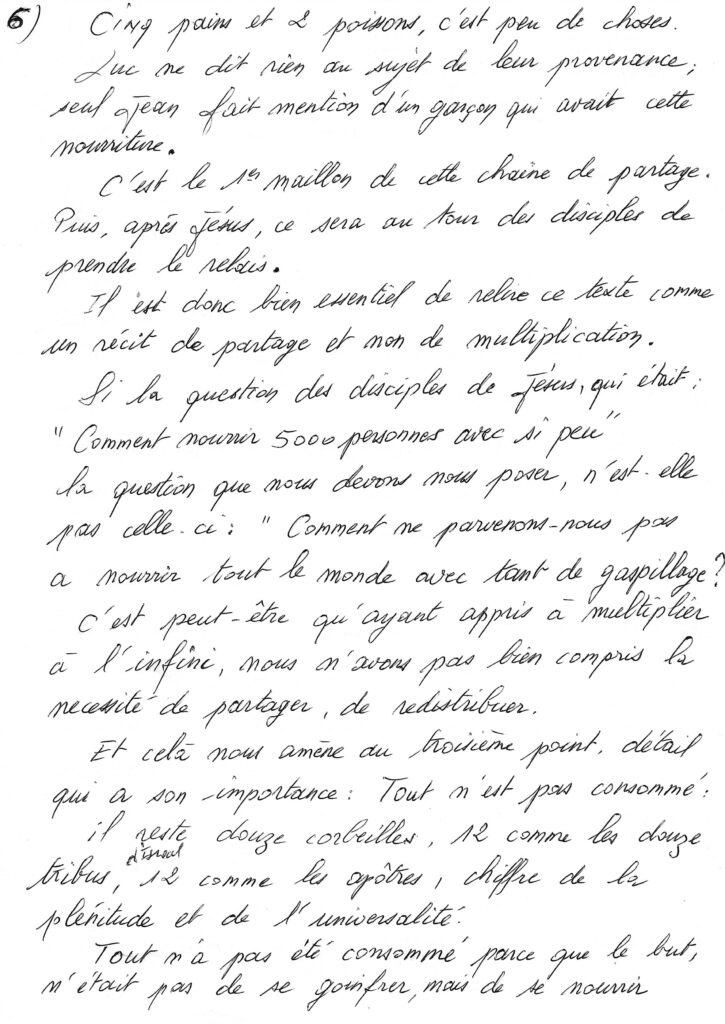 6) Cinq pains et 2 poissons, c'est peu de choses.
Luc ne dit rien au sujet de leur provenance ;
seul Jean fait mention d'un garçon qui avait cette
nourriture.
C'est le 1er maillon de cette chaîne de partage.
Puis, après Jésus, ce sera au tour des disciples de
prendre le relais.
Il est donc bien essentiel de relire ce texte comme
un récit de partage et non de multiplication.
Si la question des disciples de Jésus, qui était :
" Comment nourrir 5000 personnes avec si peu "
la question que nous devons nous poser, n'est-elle
pas celle-ci : " Comment ne parvenons-nous pas
a nourrir tout le monde avec tant de gaspillage ?
C'est peut-être qu'ayant appris à multiplier
à l'infini, nous n'avons pas bien compris la
necessité de partager, de redistribuer.
Et celà nous amène au troisième point, détail
qui a son importance : Tout n'est pas consommé :
il reste douze corbeilles, 12 comme les douze
tribus d'israel, 12 comme les apôtres, chiffre de la
plénitude et de l'universalité.
Tout n'a pas été consommé parce que le but,
n'était pas de se goinfrer, mais de se nourrir